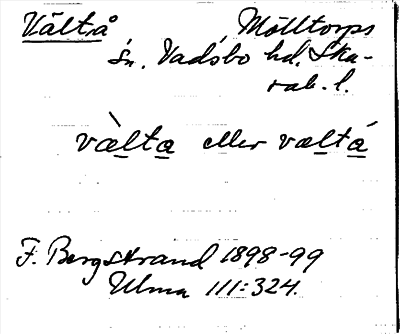 Vältå Mölltorps
sn. Vadsbo hd. Ska-
rab. l.
vὰlta eller væltá
F. Bergstrand 1898-99
Ulma 111:324.